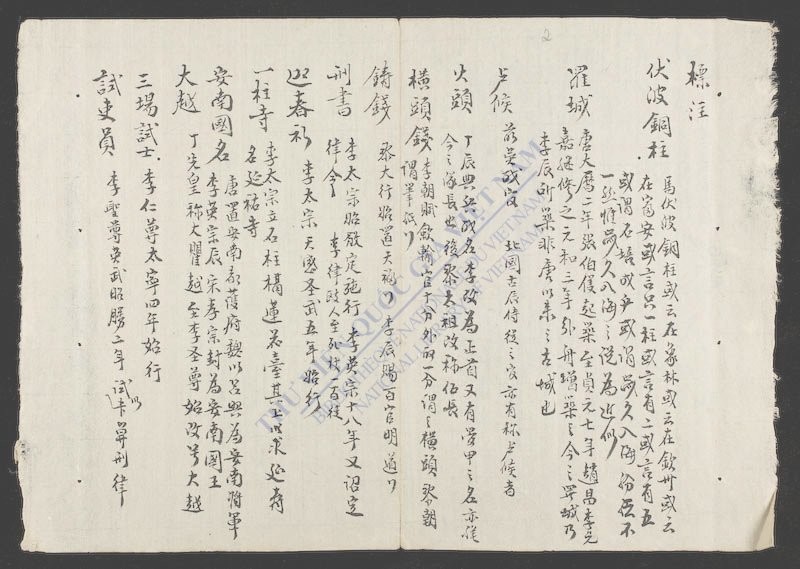 2
標注
伏波銅柱 馬伏波銅柱或云在象林或云在欽州或云
在富安或言只一柱或言有二或言有五
或謂石培成乎或謂歲久入海份伍不
一然惟歲久入海之説為近似
羅城 唐大曆二年張伯儀起築至貞元七年趙昌李元
嘉繼修之元和三年外舟增築之今之羅城乃
李辰所築非唐以來之古城也
占候 北國古辰侍從之官亦有称占候者
火頭 丁辰典兵或名李改為正首又有管甲之名亦從
今之隊長也後黎太祖改称伍長
橫頭錢 李朝賦斂輸官十分外為一分謂之橫頭黎朝
謂筆紙
鋳錢 黎大行始置天福 李辰賜百官明道
刑書 李太宗始設定施行 李英宗十八年又詔定
律令 李律政人至死付百徒
迎春礼 李太宗天感圣武五年始行
一柱寺 李太宗立石柱構蓮花臺其上以求延寿
名延祐寺
安南國名 唐置安南都護府魏以呂興為安南將軍
李英宗辰宋孝宗封為安南國王
大越 丁先皇称大瞿越至李圣尊始改号大越
三場試士 李仁尊太寧四年始行
試吏員 李聖尊英武昭勝二年試以書算刑律
THƯ VIỆN QUỐC GIA VIỆT NAM
BIBLIOTHEQUE NATIONALE DU VIETNAM
NATIONAL LIBRARY OF VIETNAM